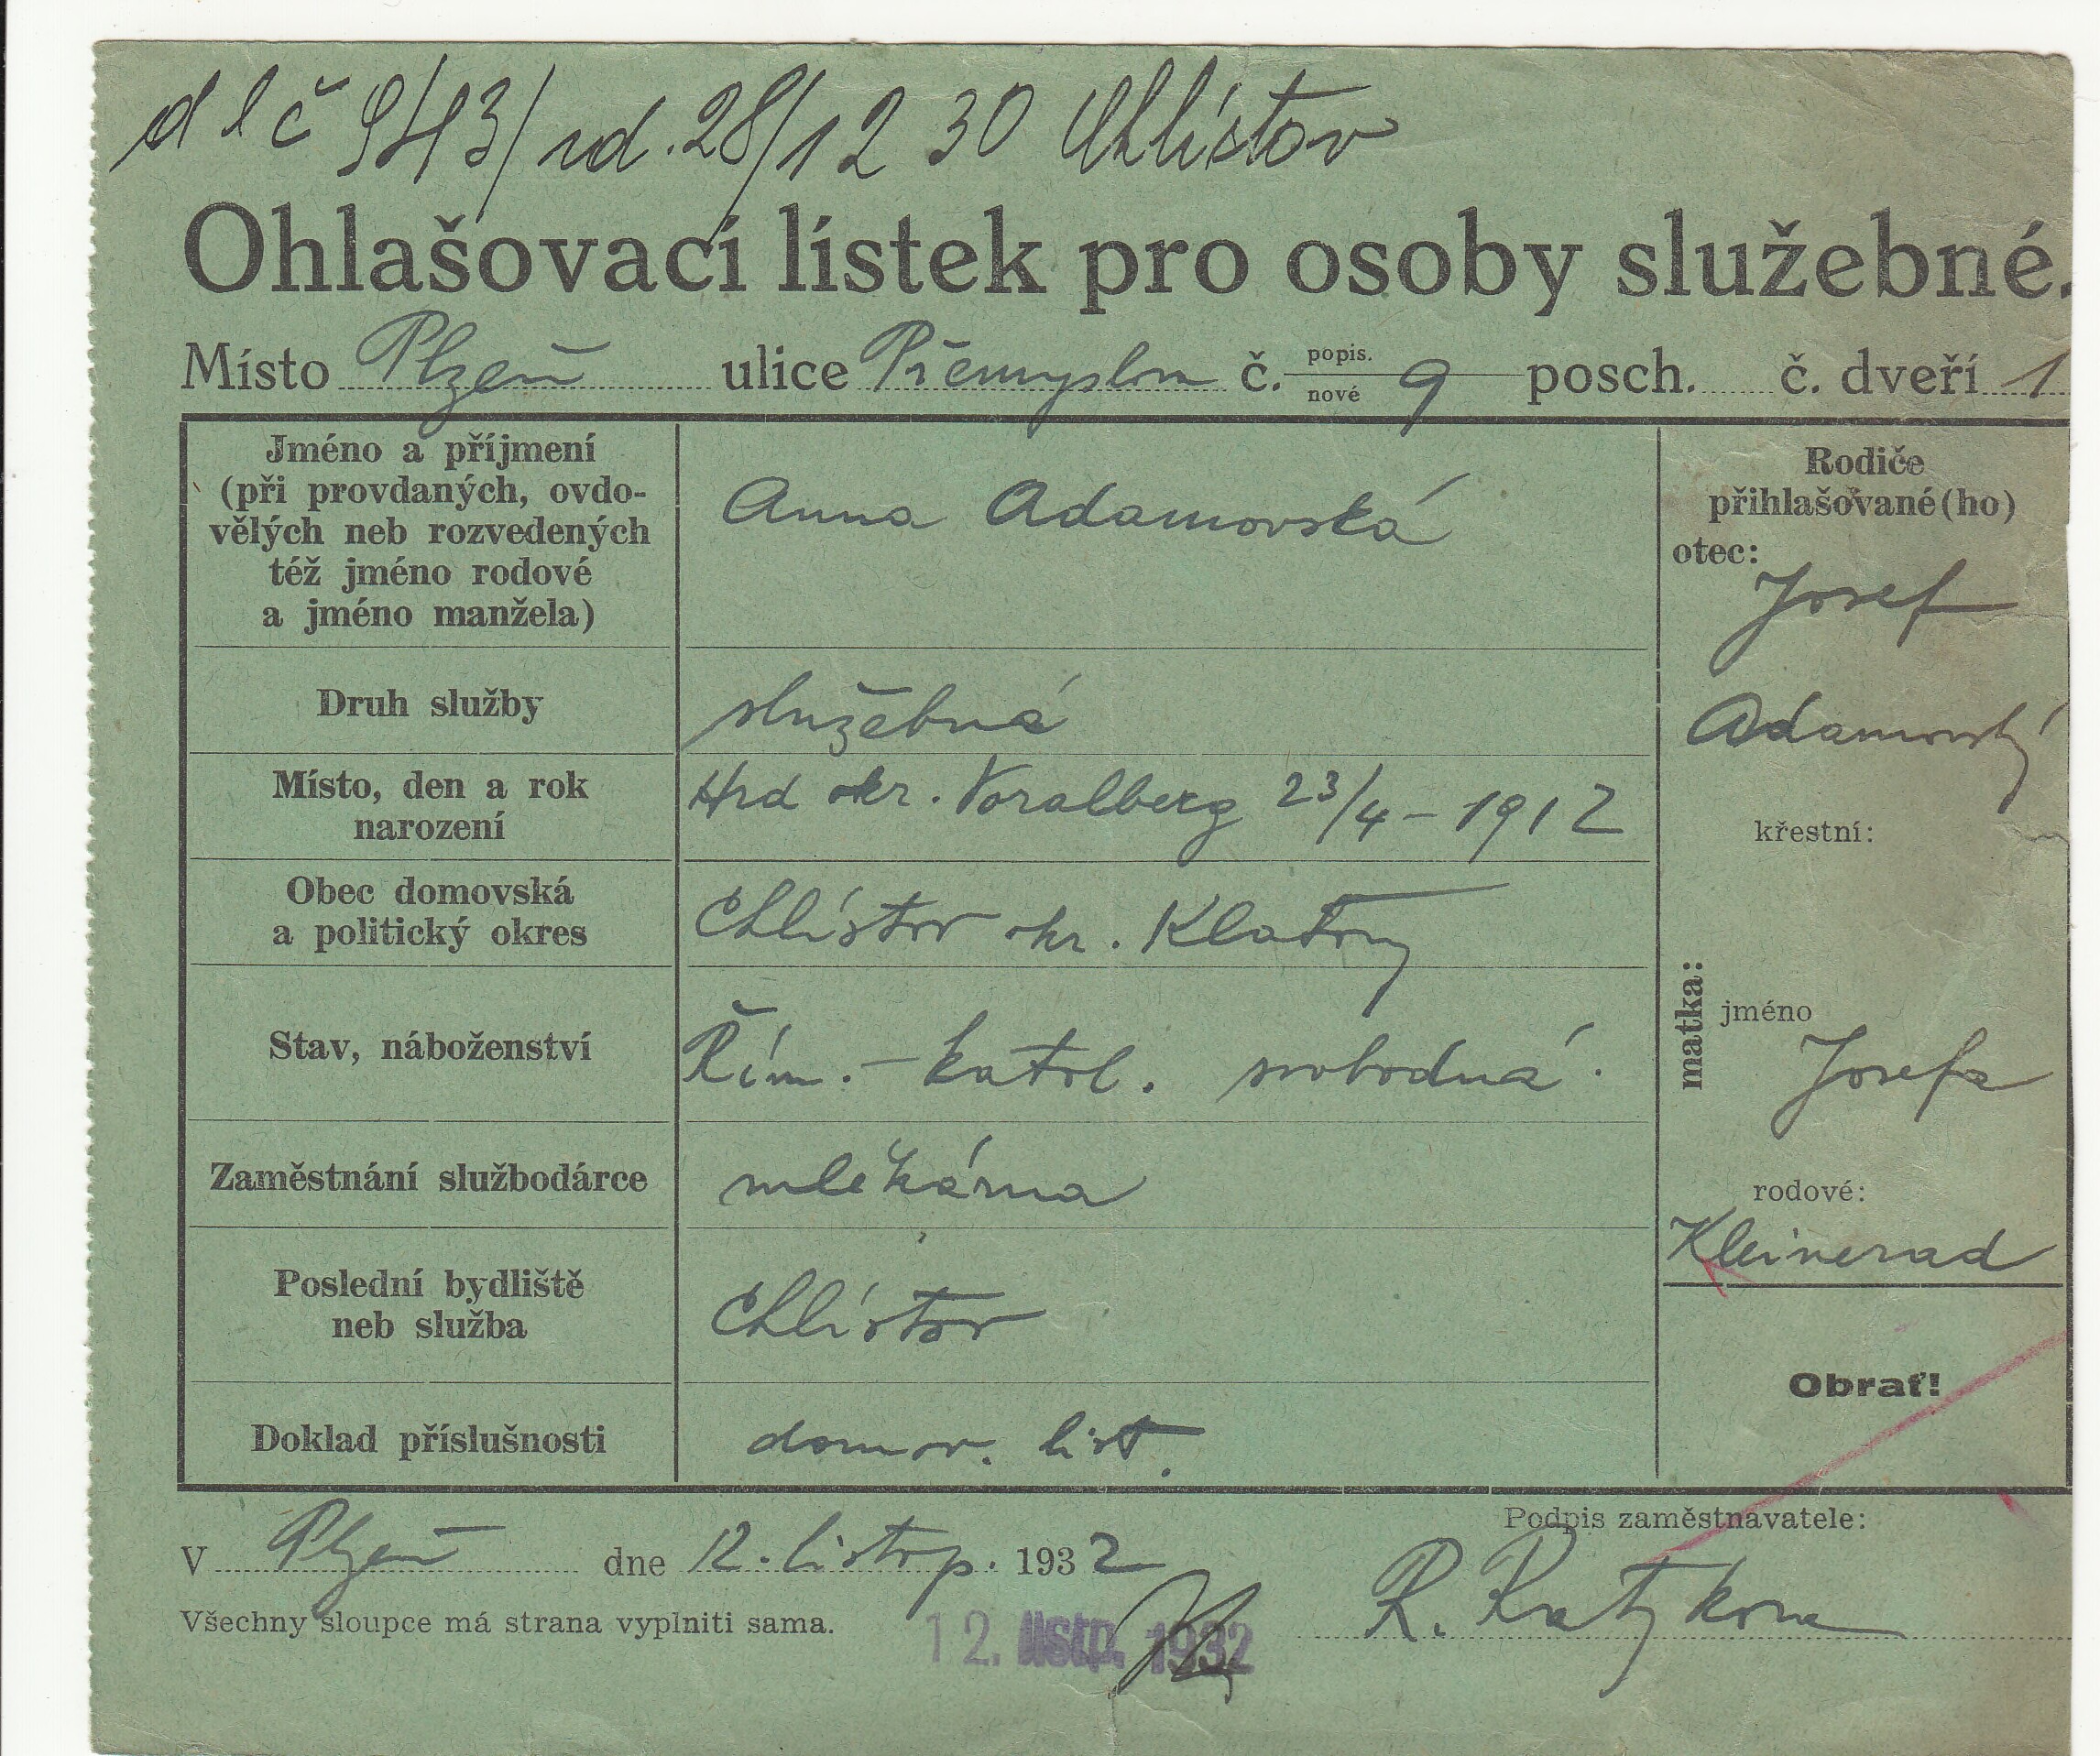 d l č 943/ zd. 28/12 30 Chlístov
Ohlašovací lístek pro osoby služebné.
Místo Plzeň ulice Přemyslova č. popis. nové 9 posch. č. dveří 1
Jméno a příjmení
(při provdaných, ovdo-
vělých neb rozvedených
též jméno rodové
a jméno manžela)
Anna Adamovská
Druh služby
služebná
Místo, den a rok
narození
Hrd okr. Voralberg 23/4 – 1912
Obec domovská
a politický okres
Chlístov okr. Klatovy
Stav, náboženství
Řím. – katol. svobodná.
Zaměstnání službodárce
mlékárna
Poslední bydliště
neb služba
Chlístov
Doklad příslušnosti
domov. list.
Rodiče
přihlašované(ho)
otec:
Josef
Adamovský
matka:
křestní:
jméno
Josefa
rodové:
Kleinerad
Obrať!
V Plzeň dne 12. listop. 1932
Podpis zaměstnavatele:
R.
Všechny sloupce má strana vyplniti sama.
12. listp. 1932